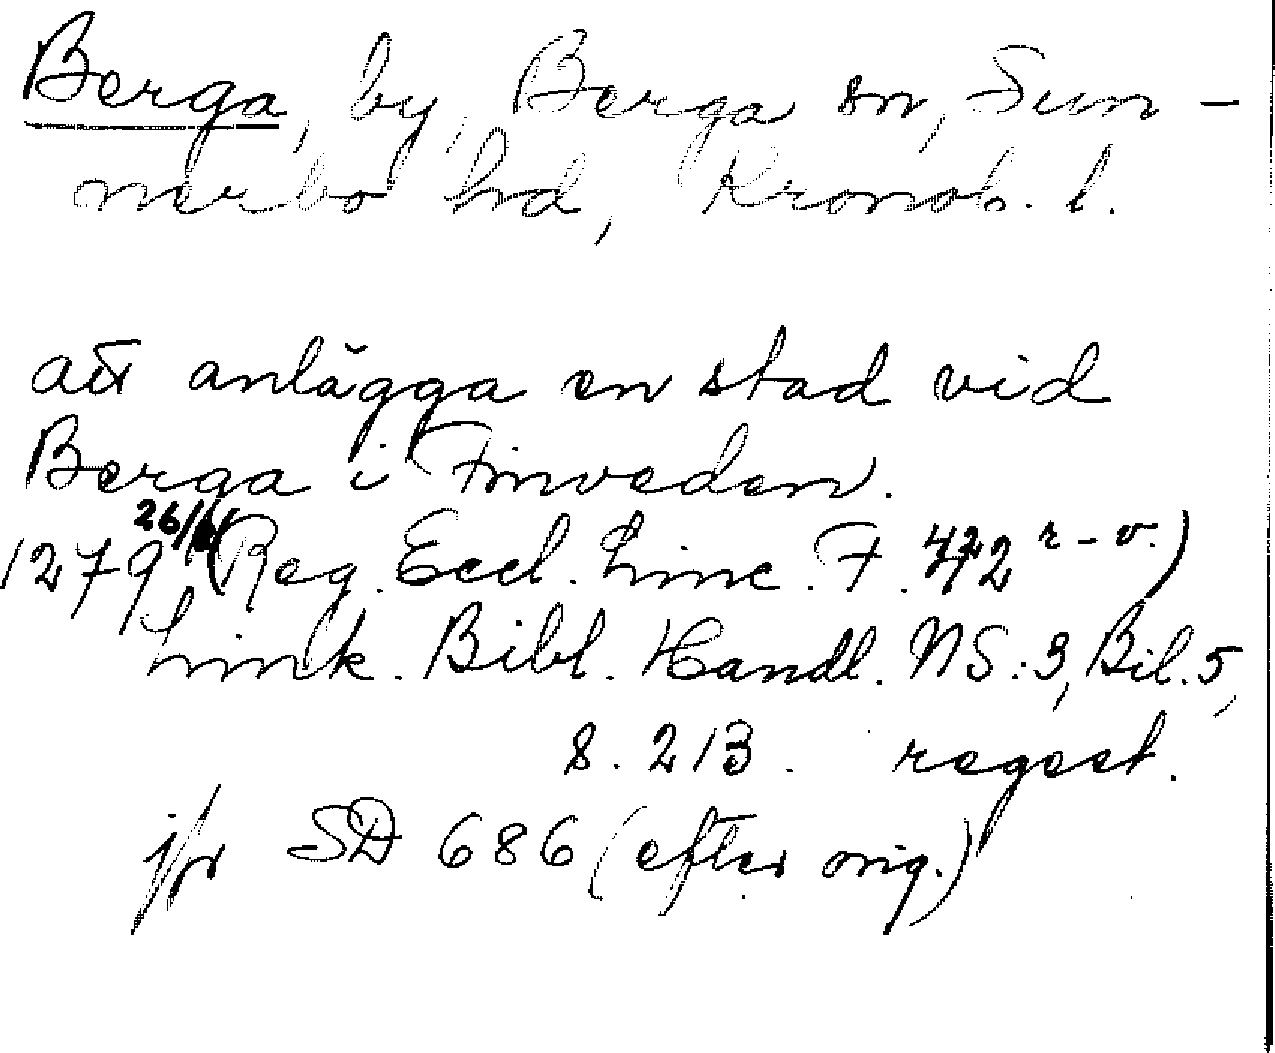 Berga, by, Berga sn, Sun-
nerbo hd, Kronob. l.
att anlägga en stad vid
Berga i Finveden.
1279 26/ (Reg. Eccl. Linc. F. 422 r-v.)
Link. Bibl. Handl. NS: 3, Bil. 5,
s. 213. regest.
jfr SD 686 (efter orig.)